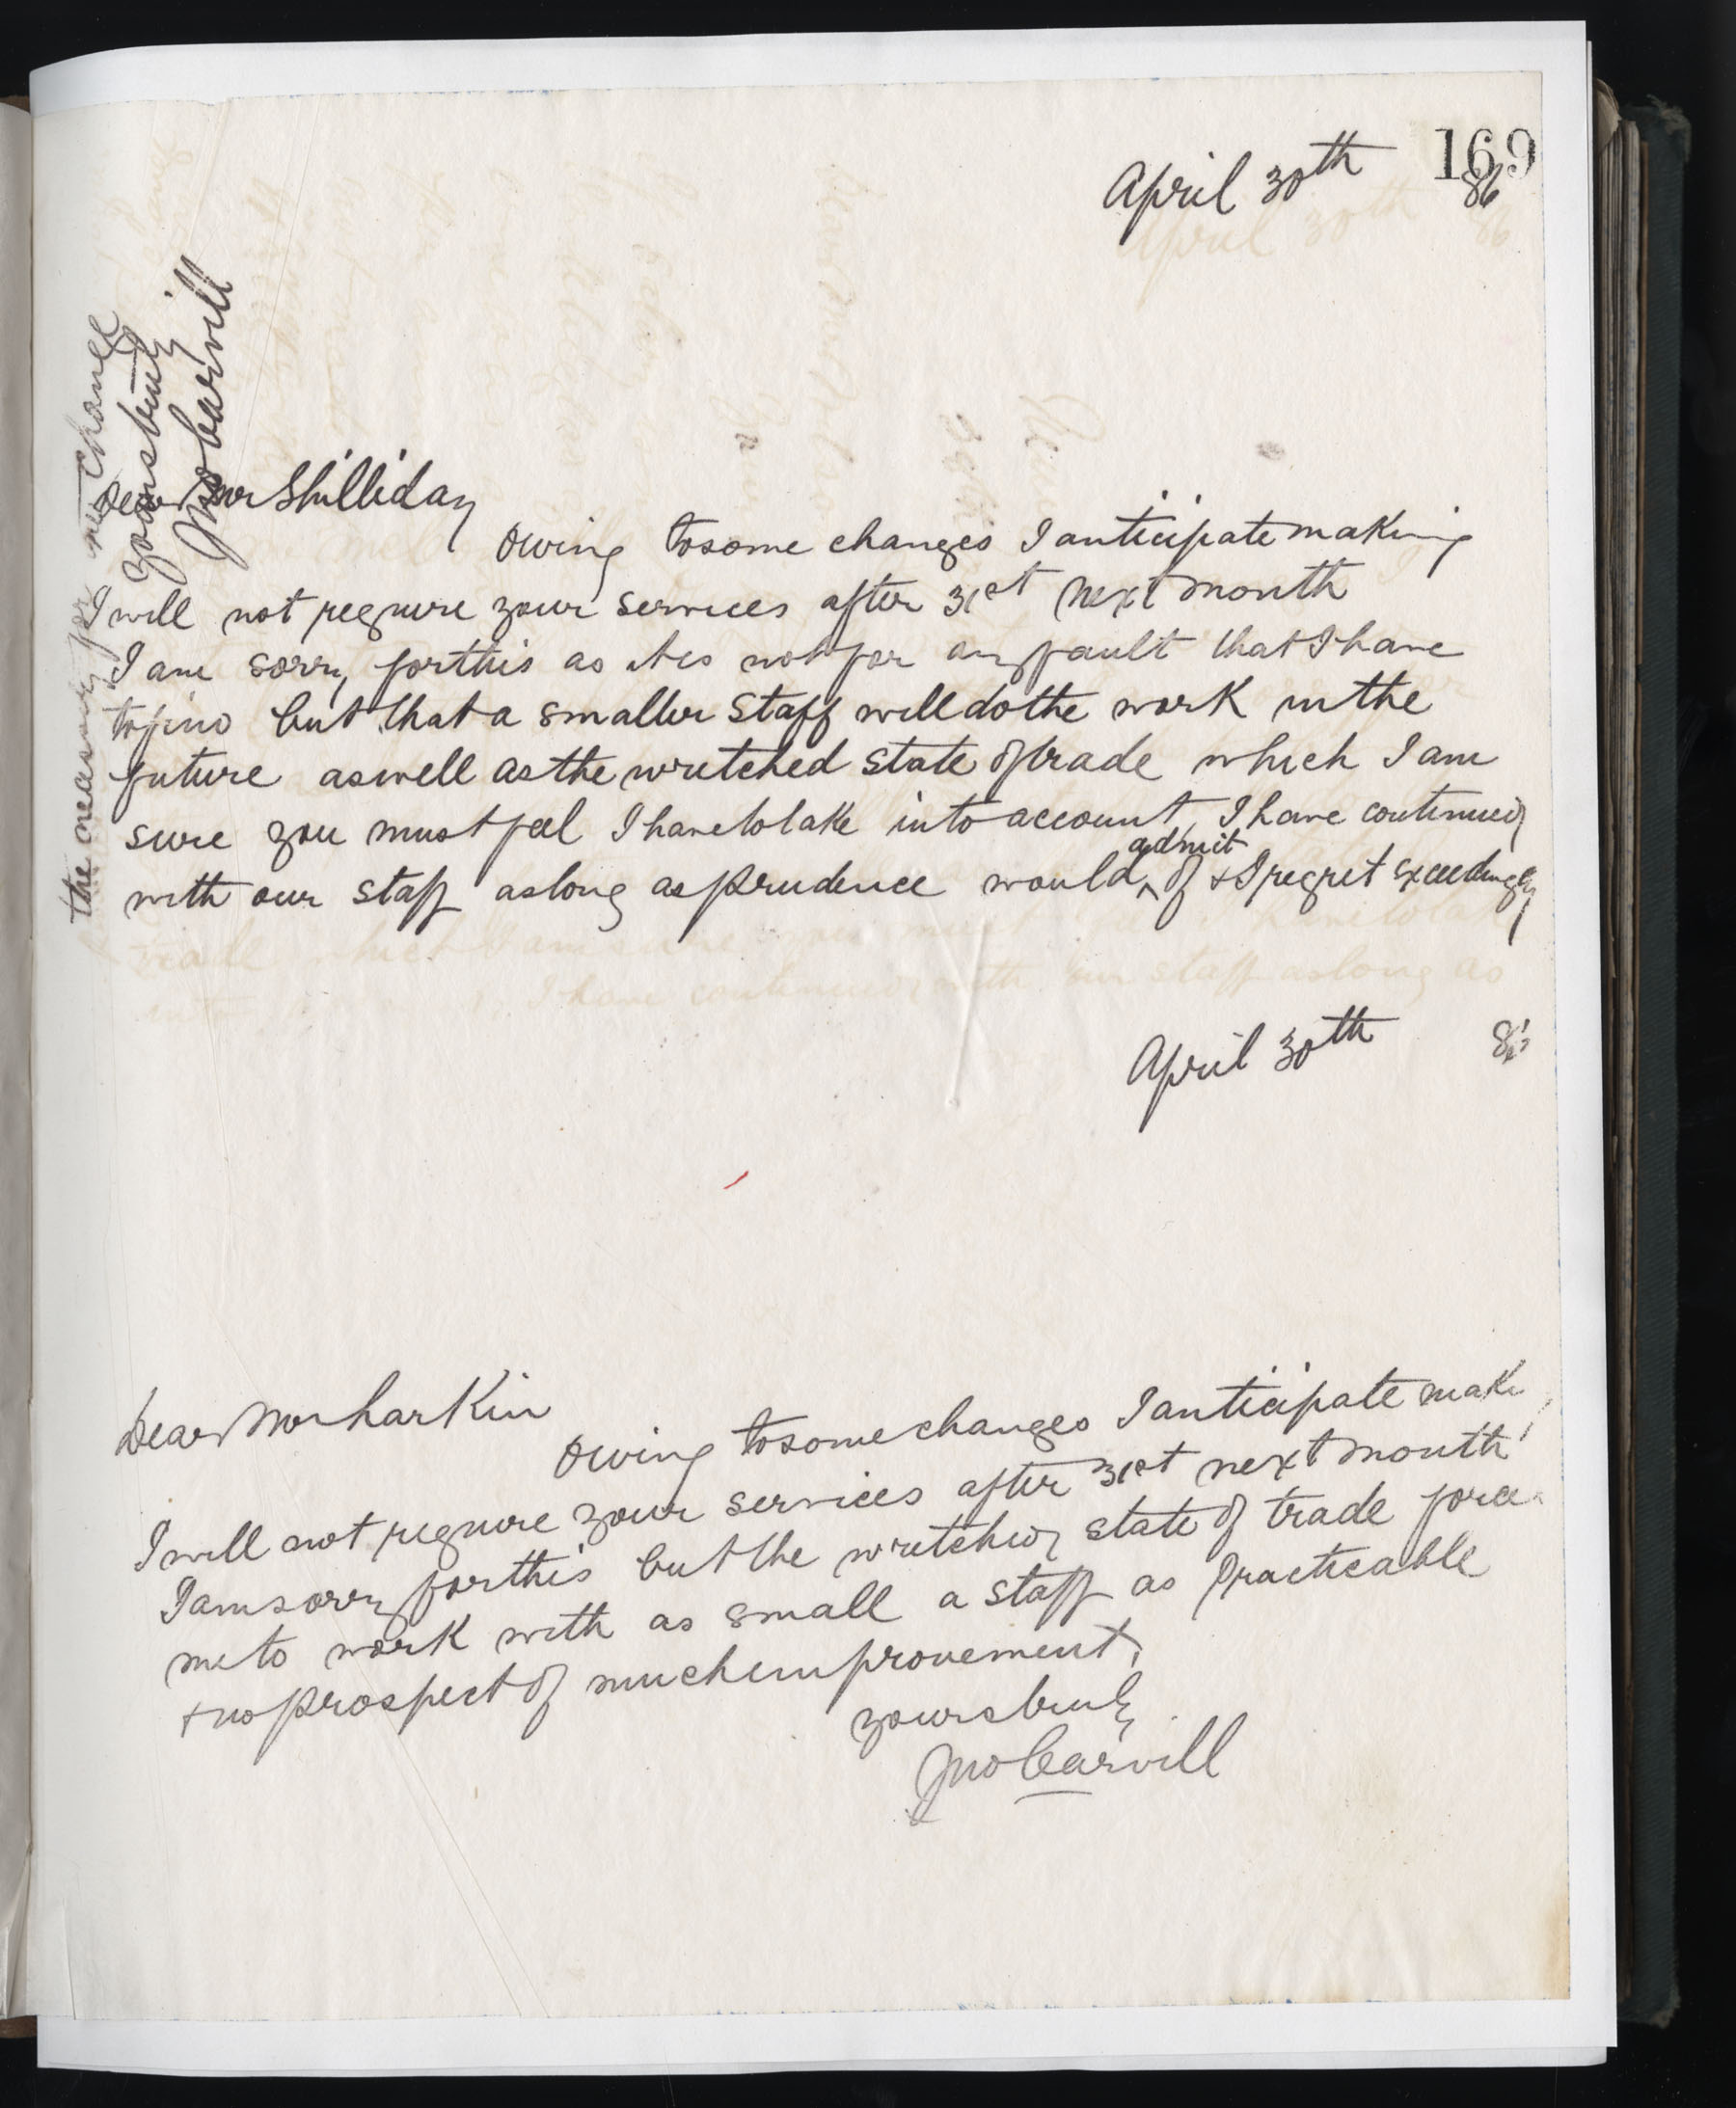 169
April 30th 86
Dear Mr Shilliday
Owing to some changes I anticipate making
I will not require your services after 31st next month
I am sorry for this as it is not for any fault that I have
to find but that a smaller staff will do the work in the
future as well as the wretched state of trade which I am
sure you must feel I have to take into account, I have continued
with our staff as long as prudence would admit of & I regret exceedingly
the necessity for the change
yours truly
Jno Carvill
April 30th 86
Dear Mr Larkin
Owing to some changes I anticipate making
I will not require your services after 31st next month
I am sorry for this but the wretched state of trade forces
me to work with as small a staff as practicable
& no prospect of much improvement,
yours truly
Jno Carvill